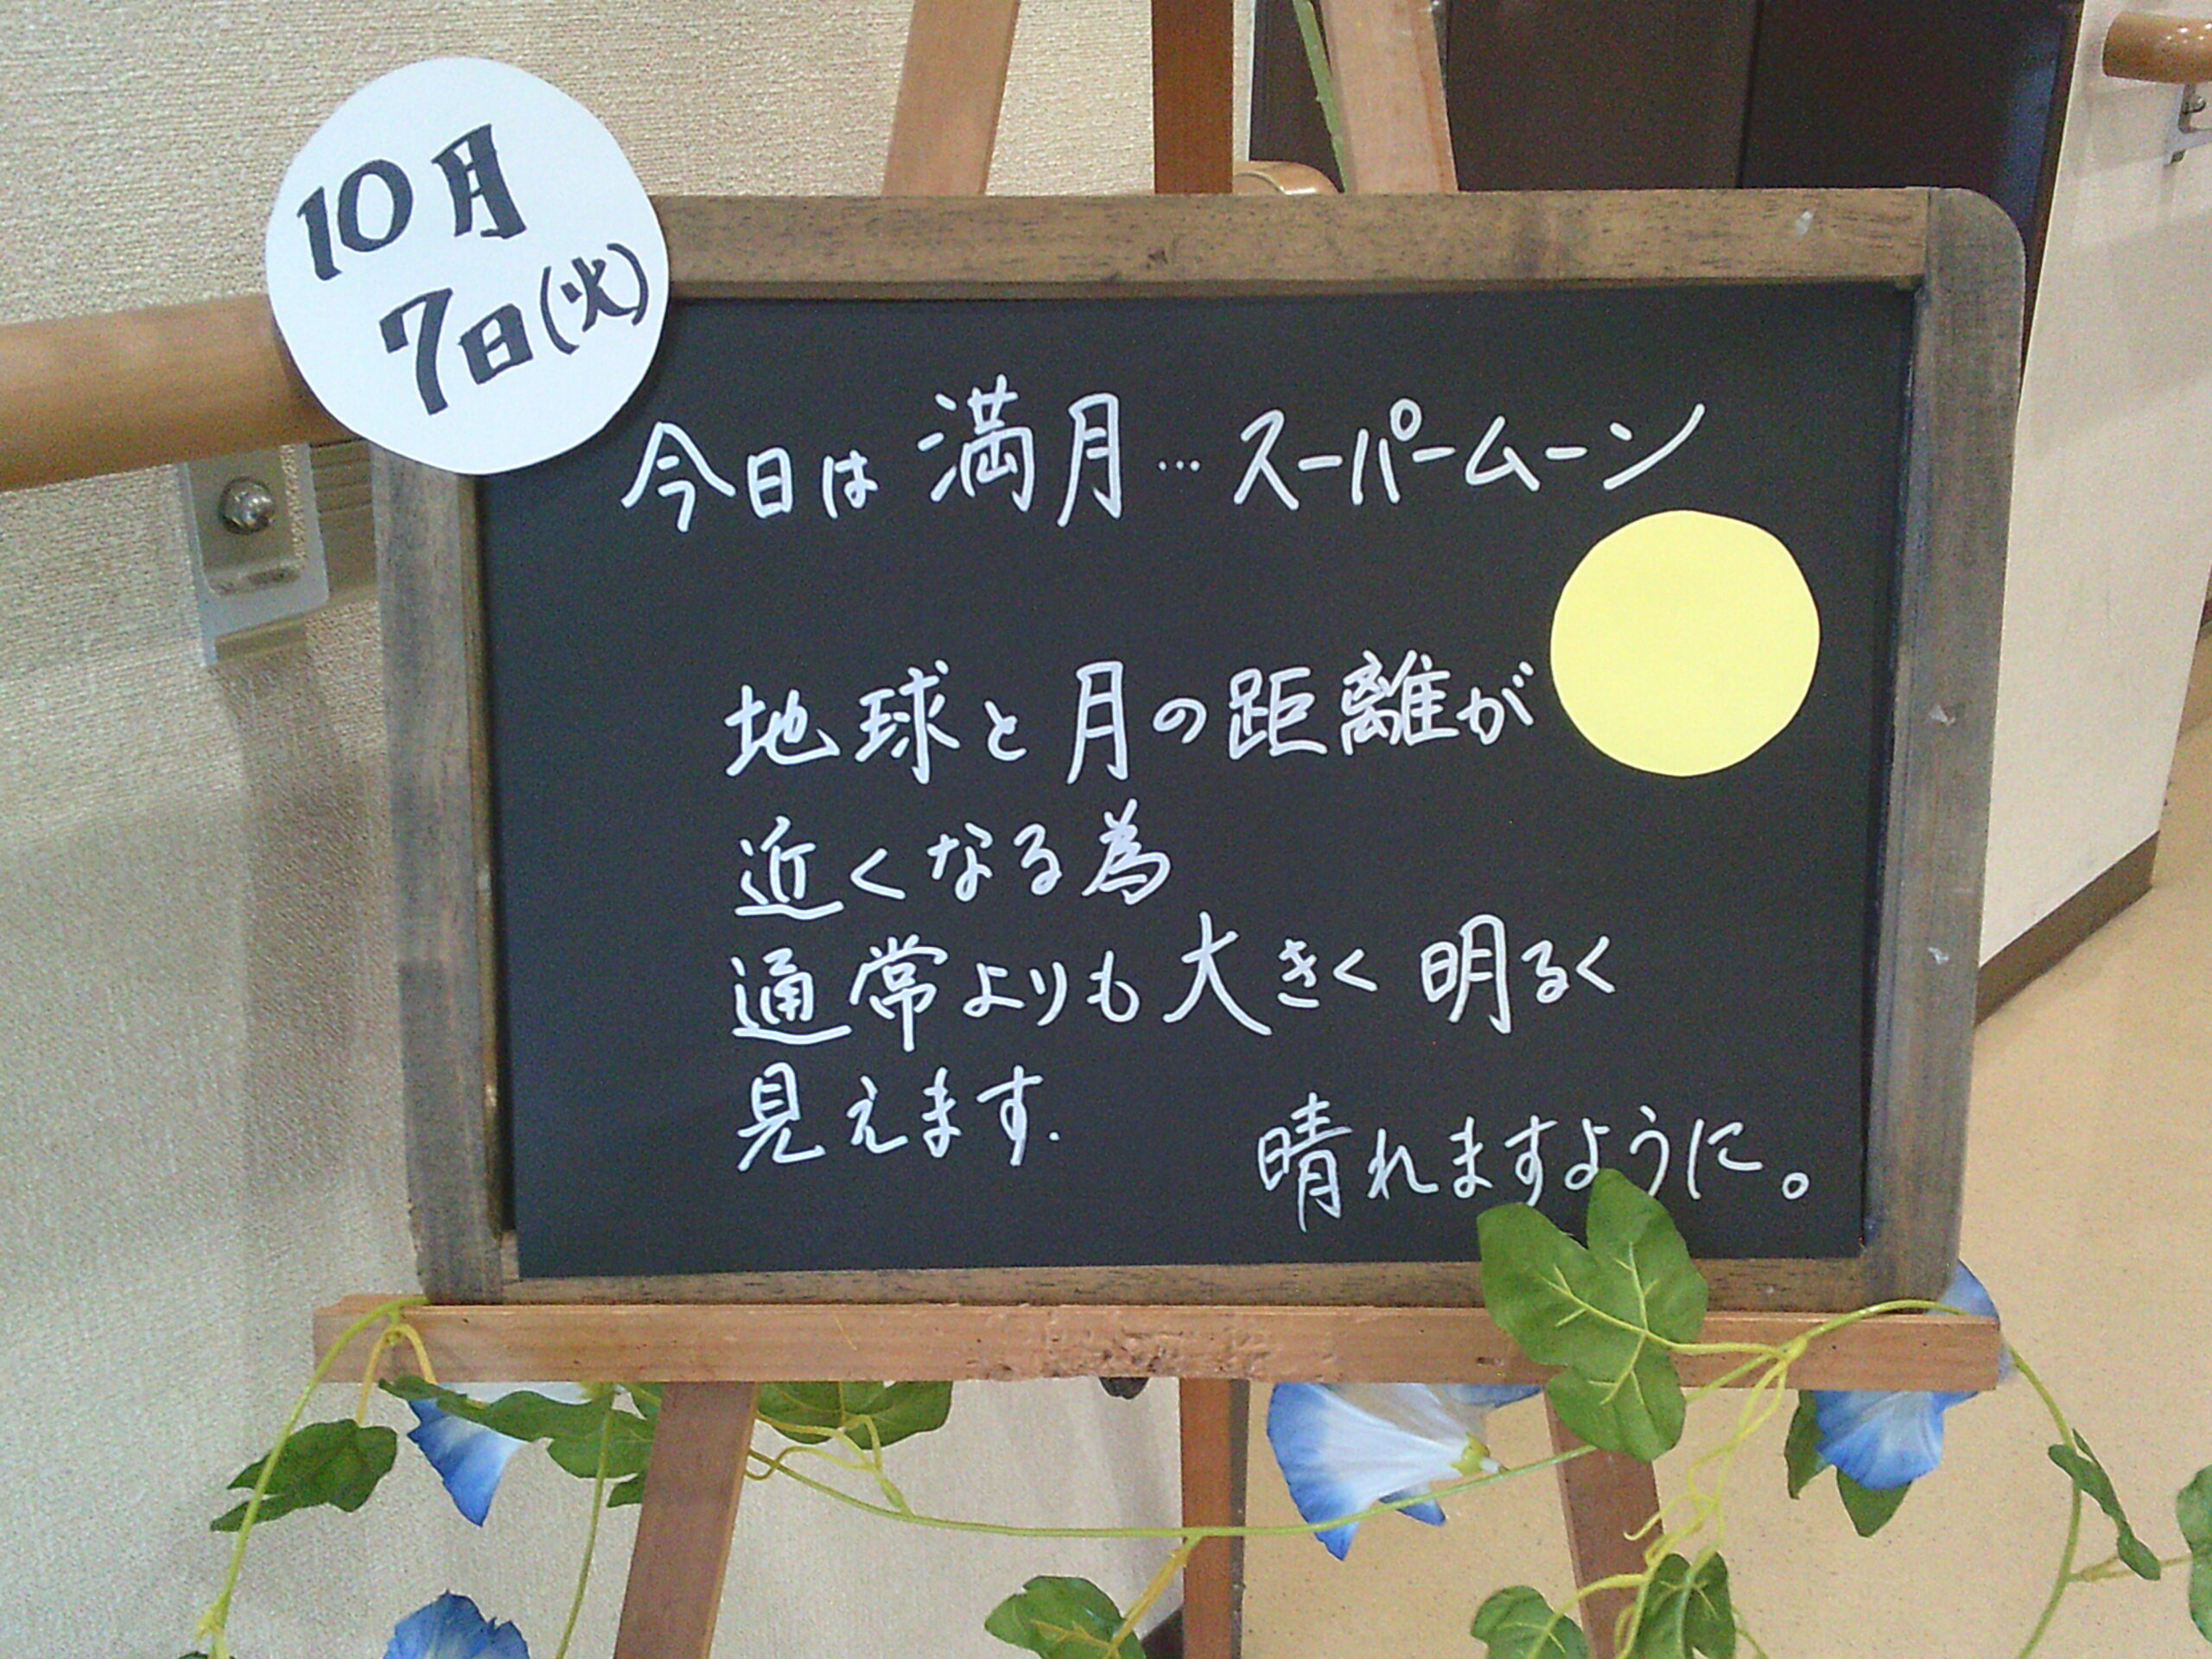 10月
7日(火)
今日は満月…スーパームーン
地球と月の距離が
近くなる為
通常よりも大きく明るく
見えます.
晴れますように。